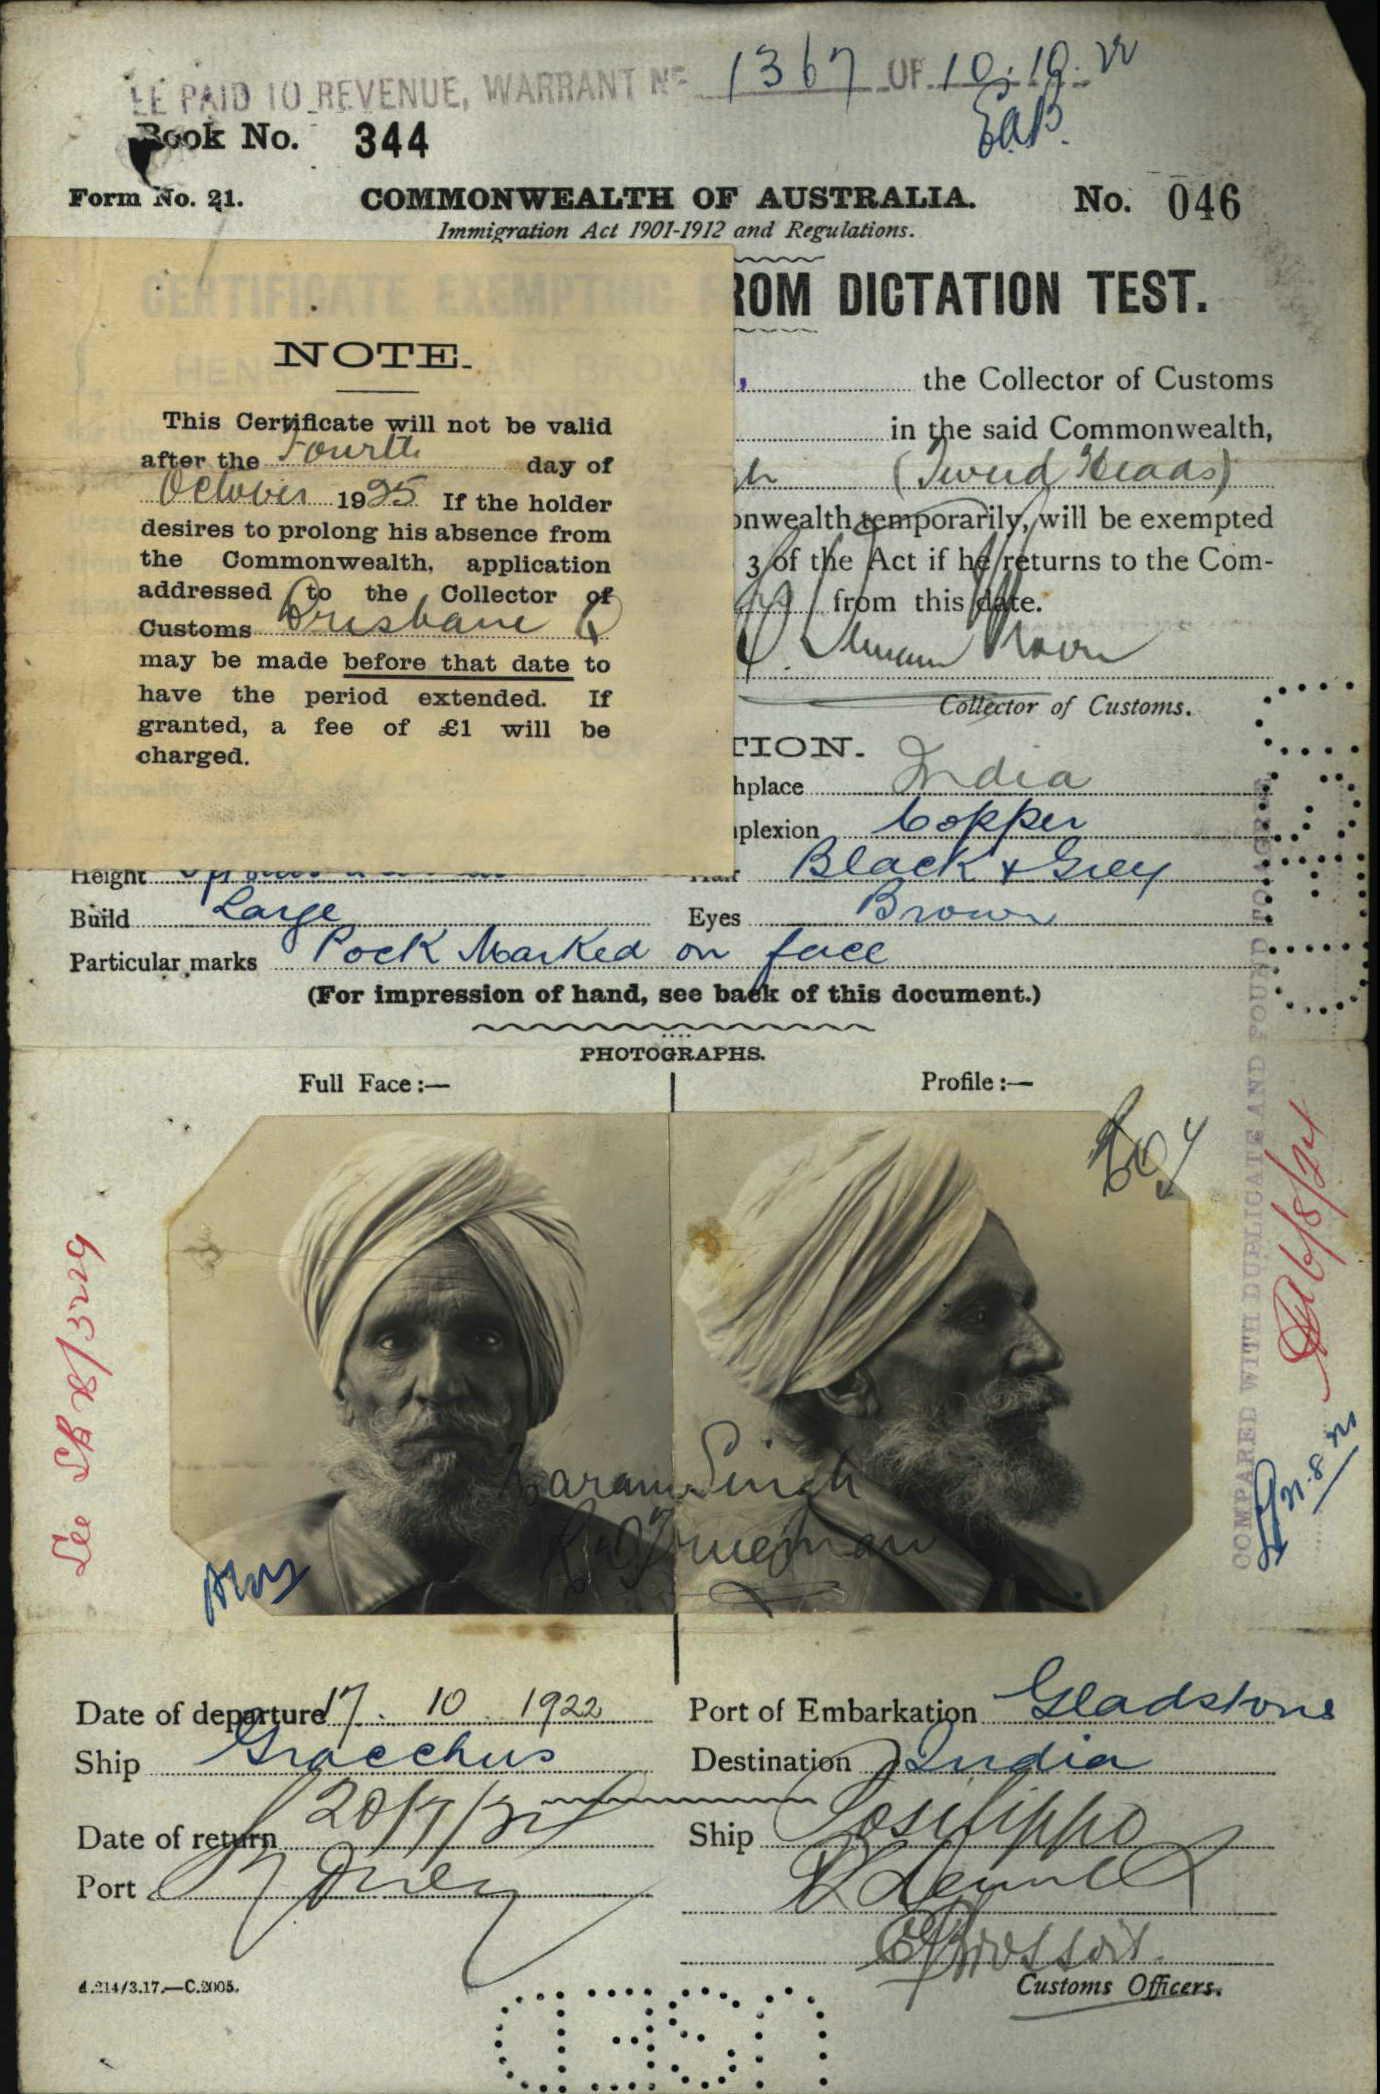 EE PAID TO REVENUE, WARRANT No 1367 OF 10.10.22
EaB.
Book No. 344
Form No. 21. COMMONWEALTH OF AUSTRALIA. No. 046
Immigration Act 1901-1912 and Regulations.
CERTIFICATE EXEMPTING FROM DICTATION TEST.
the Collector of Customs
in the said Commonwealth,
gh (Tweed Heads)
onwealth temporarily, will be exempted
3 of the Act if he returns to the Com-
from this date.
Collector of Customs.
NOTE.
This Certificate will not be valid
after the Fourth day of
October 1925 If the holder
desires to prolong his absence from
the Commonwealth, application
addressed to the Collector of
Customs Brisbane Q
may be made before that date to
have the period extended. If
granted, a fee of £1 will be
charged.
TION.
hplace India
nplexion Copper
Height Hair Black & Grey
Build Large Eyes Brown
Particular marks Pock Marked on face
(For impression of hand, see back of this document.)
PHOTOGRAPHS.
Full Face:— Profile:—
Karam Singh
COMPARED WITH DUPLICATE AND FOUND TO AGREE
Date of departure 17. 10. 1922 Port of Embarkation Gladstone
Ship Gracchus Destination India
Date of return 20/7/24 Ship Posilippo
Port Sydney
Customs Officers.
A.214/3.17.—C.2005.